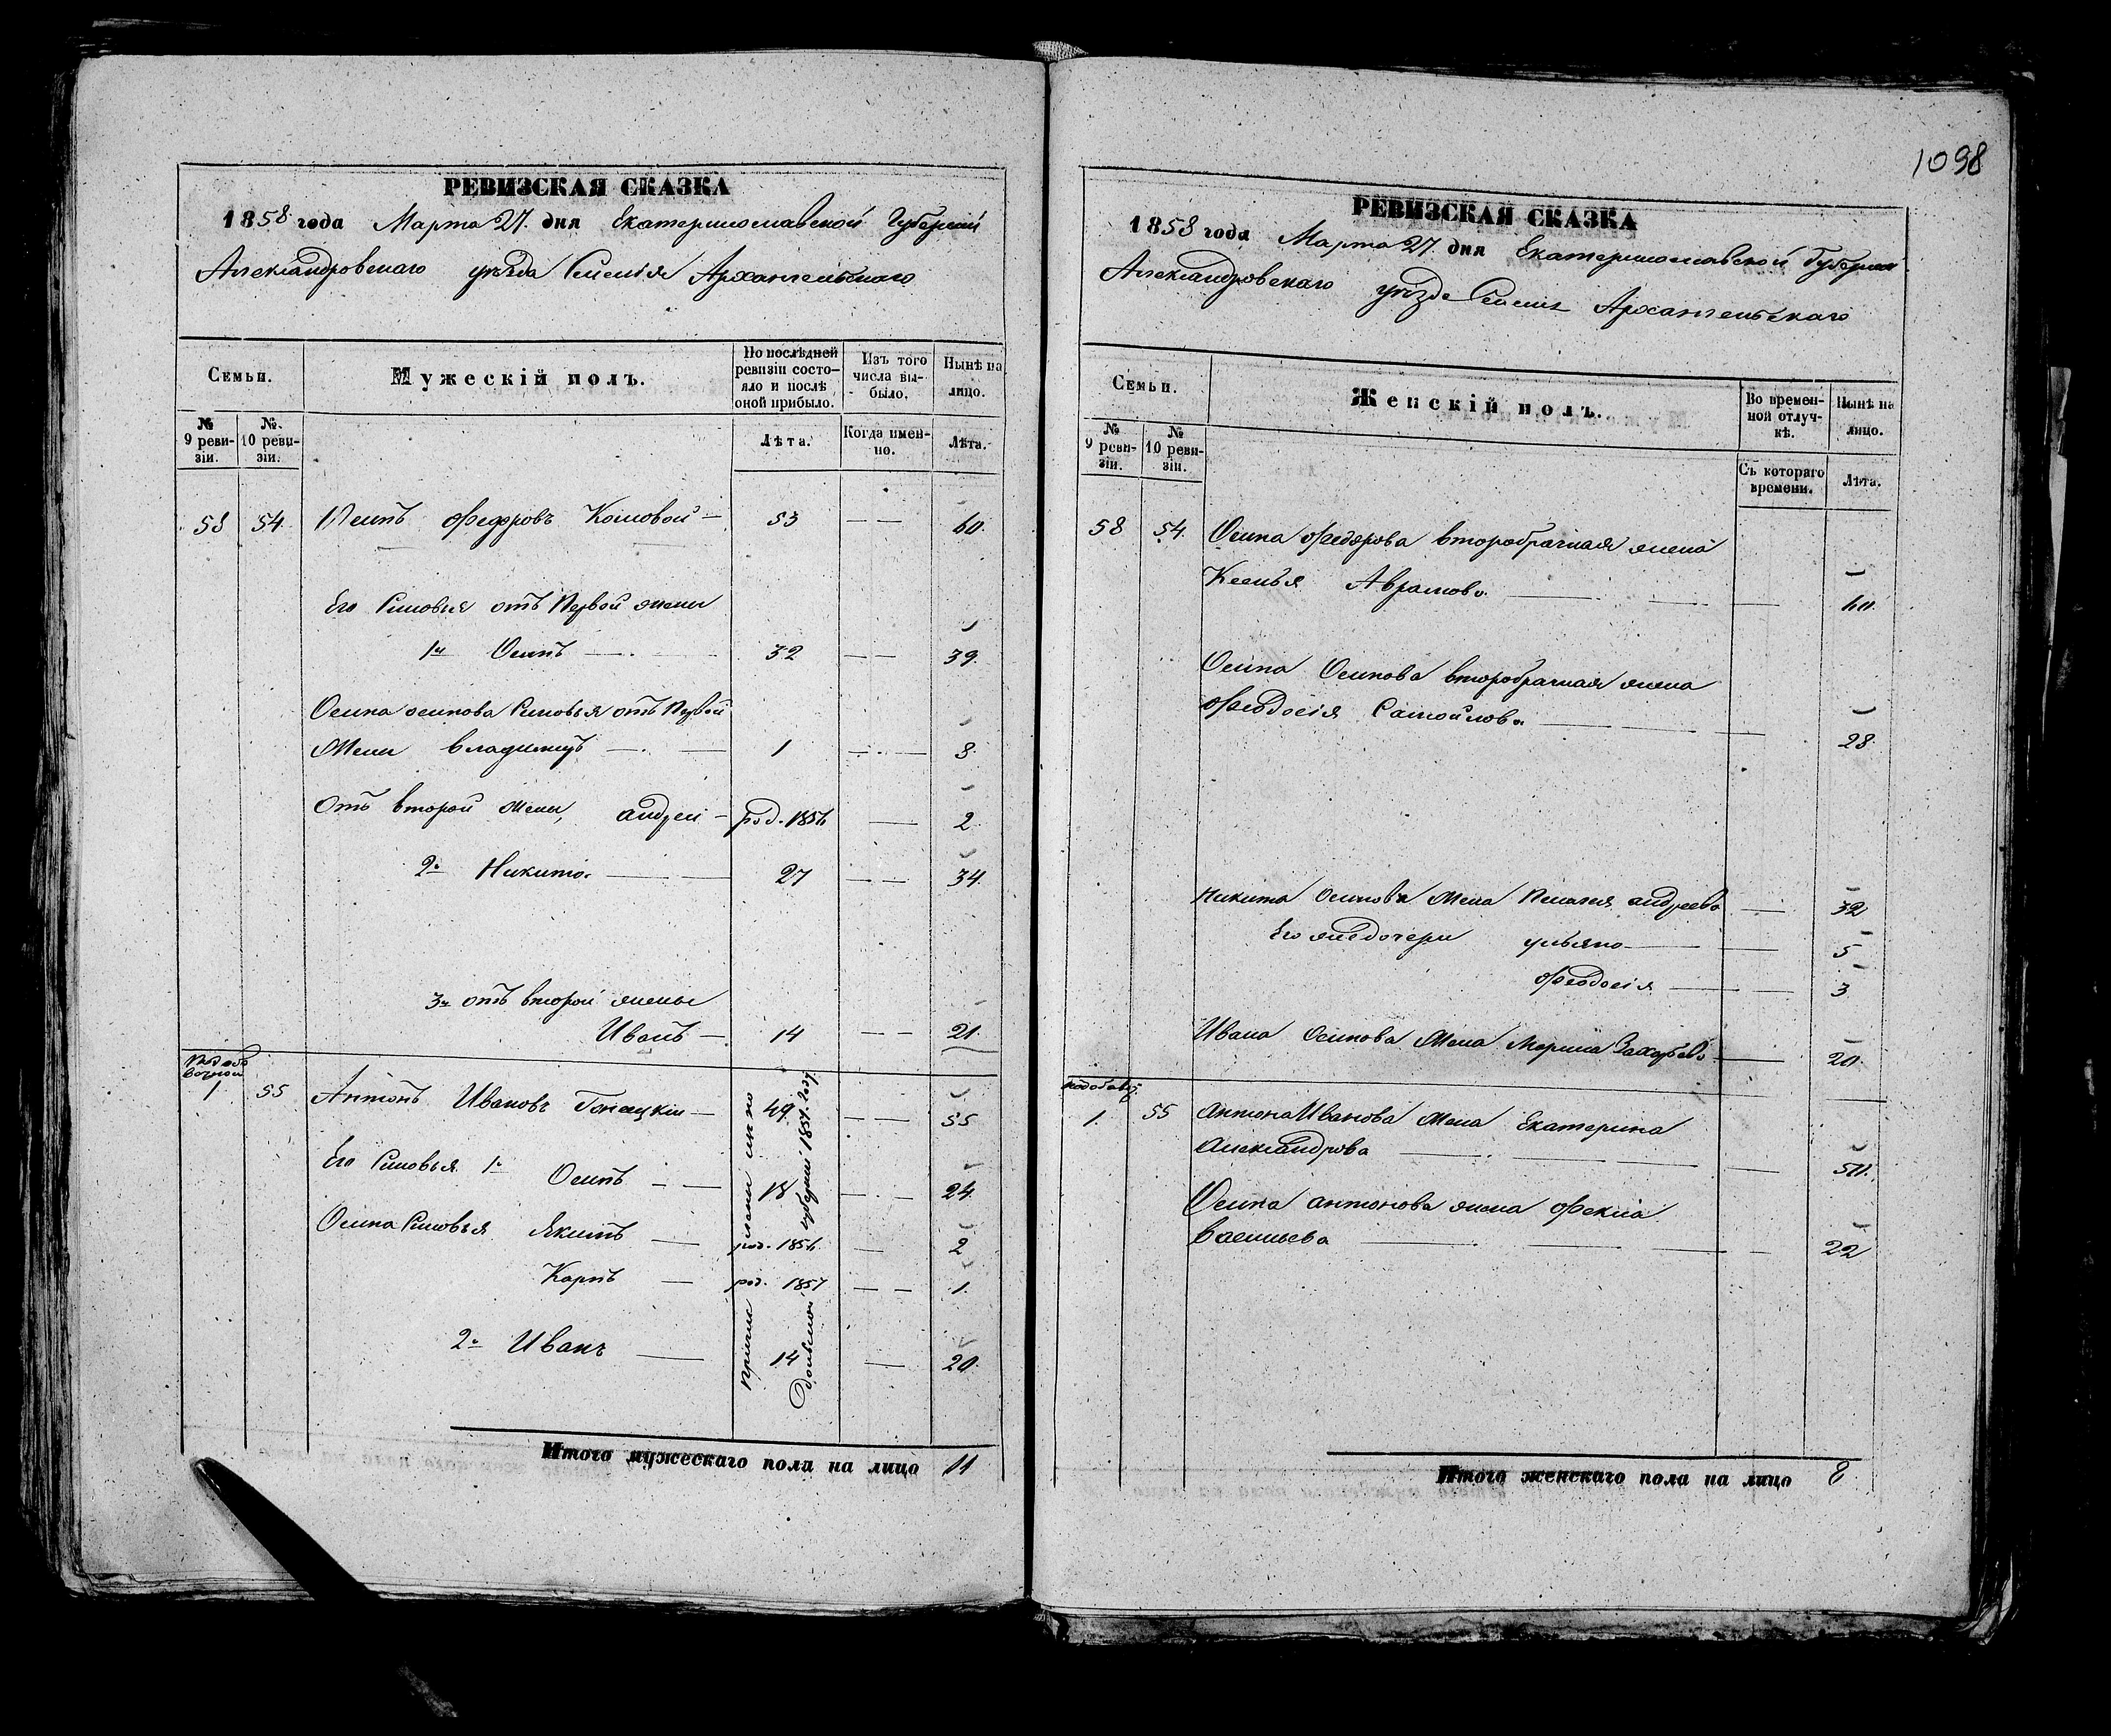 1098
РЕВИЗСКАЯ СКАЗКА
1858 года Марта 27. дня Екатеринославской Губернии
Александровскаго уѣзда Селенія Архангельскаго
Семьи.
Мужескій полъ.
По послѣдней ревизіи состояло и послѣ оной прибыло.
Изъ того числа выбыло.
Нынѣ на лицо.
№ 9 ревизіи.
№. 10 ревизіи.
Лѣта.
Когда именно.
Лѣта.
58 54. Федоровъ 53 — — 60.
Его Синовья отъ Первой жены
1й Осипъ — 32 — — 39.
Осипа осипова Синовья отъ Первой
Жены Владимиръ — 1 — — 8.
Отъ второй Жены, андрей — род. 1856 — 2.
2й Никита — 27 — — 34.
3й отъ второй жены
Иванъ — 14 — — 21.
1 55 Антонъ Ивановъ — 49 — — 55
Его Синовья 1й Осипъ — — 18 — — 24.
Осипа Синовья Якимъ — род. 1856 — 2
Карпъ — род. 1857 — — 1.
2й Иванъ — 14 — 20.
Итого мужескаго пола на лицо 11
РЕВИЗСКАЯ СКАЗКА
1858 года Марта 27. дня Екатеринославской Губернии
Александровскаго уѣзда Архангельскаго
Семьи.
Женскій полъ.
Во временной отлучкѣ.
Нынѣ на лицо.
№ 9 ревизіи.
№ 10 ревизіи.
Съ котораго времени.
Лѣта.
58 54. Осипа Федорова второбрачная жена
Ксенья Абрамова — — 60.
Осипа Осипова второбрачная жена
Феодосія Самойлова — — 28.
Никиты Осипова Жена Пелагея андреева — 32
Его же дочери ульяна — — 5
Феодосія — — 3
Ивана Осипова Жена Марина — 20.
1. 55 Антона Иванова Жена Екатерина
Александрова — — 50.
Осипа антонова жена Фекла
Васильева — — 22
Итого женскаго пола на лицо 8